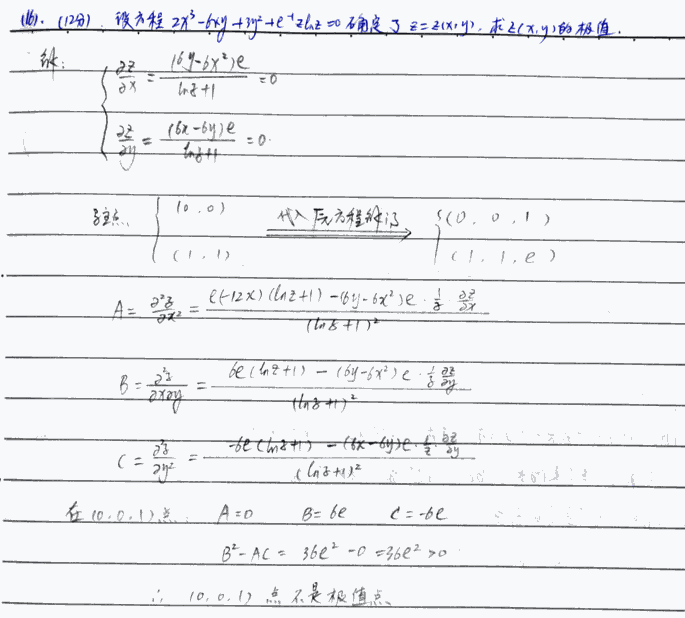 (16). (12分) 设方程 2x³-6xy+3y²+e⁻¹zlnz=0 确定了 z=z(x,y), 求z(x,y)的极值.
解: { ∂z/∂x = (6y-6x²)e / (lnz+1) = 0
∂z/∂y = (6x-6y)e / (lnz+1) = 0.
驻点 { (0,0) (1,1) 代入原方程解得 ⟹ { (0,0,1) (1,1,e)
A = ∂²z/∂x² = [e(-12x)(lnz+1)-(6y-6x²)e·(1/z)·∂z/∂x] / (lnz+1)²
B = ∂²z/∂x∂y = [6e(lnz+1)-(6y-6x²)e·(1/z)·∂z/∂y] / (lnz+1)²
C = ∂²z/∂y² = [-6e(lnz+1)-(6x-6y)e·(1/z)·∂z/∂y] / (lnz+1)²
在(0,0,1)点. A=0 B=6e C=-6e
B²-AC = 36e²-0=36e²>0
∴ (0,0,1) 点不是极值点